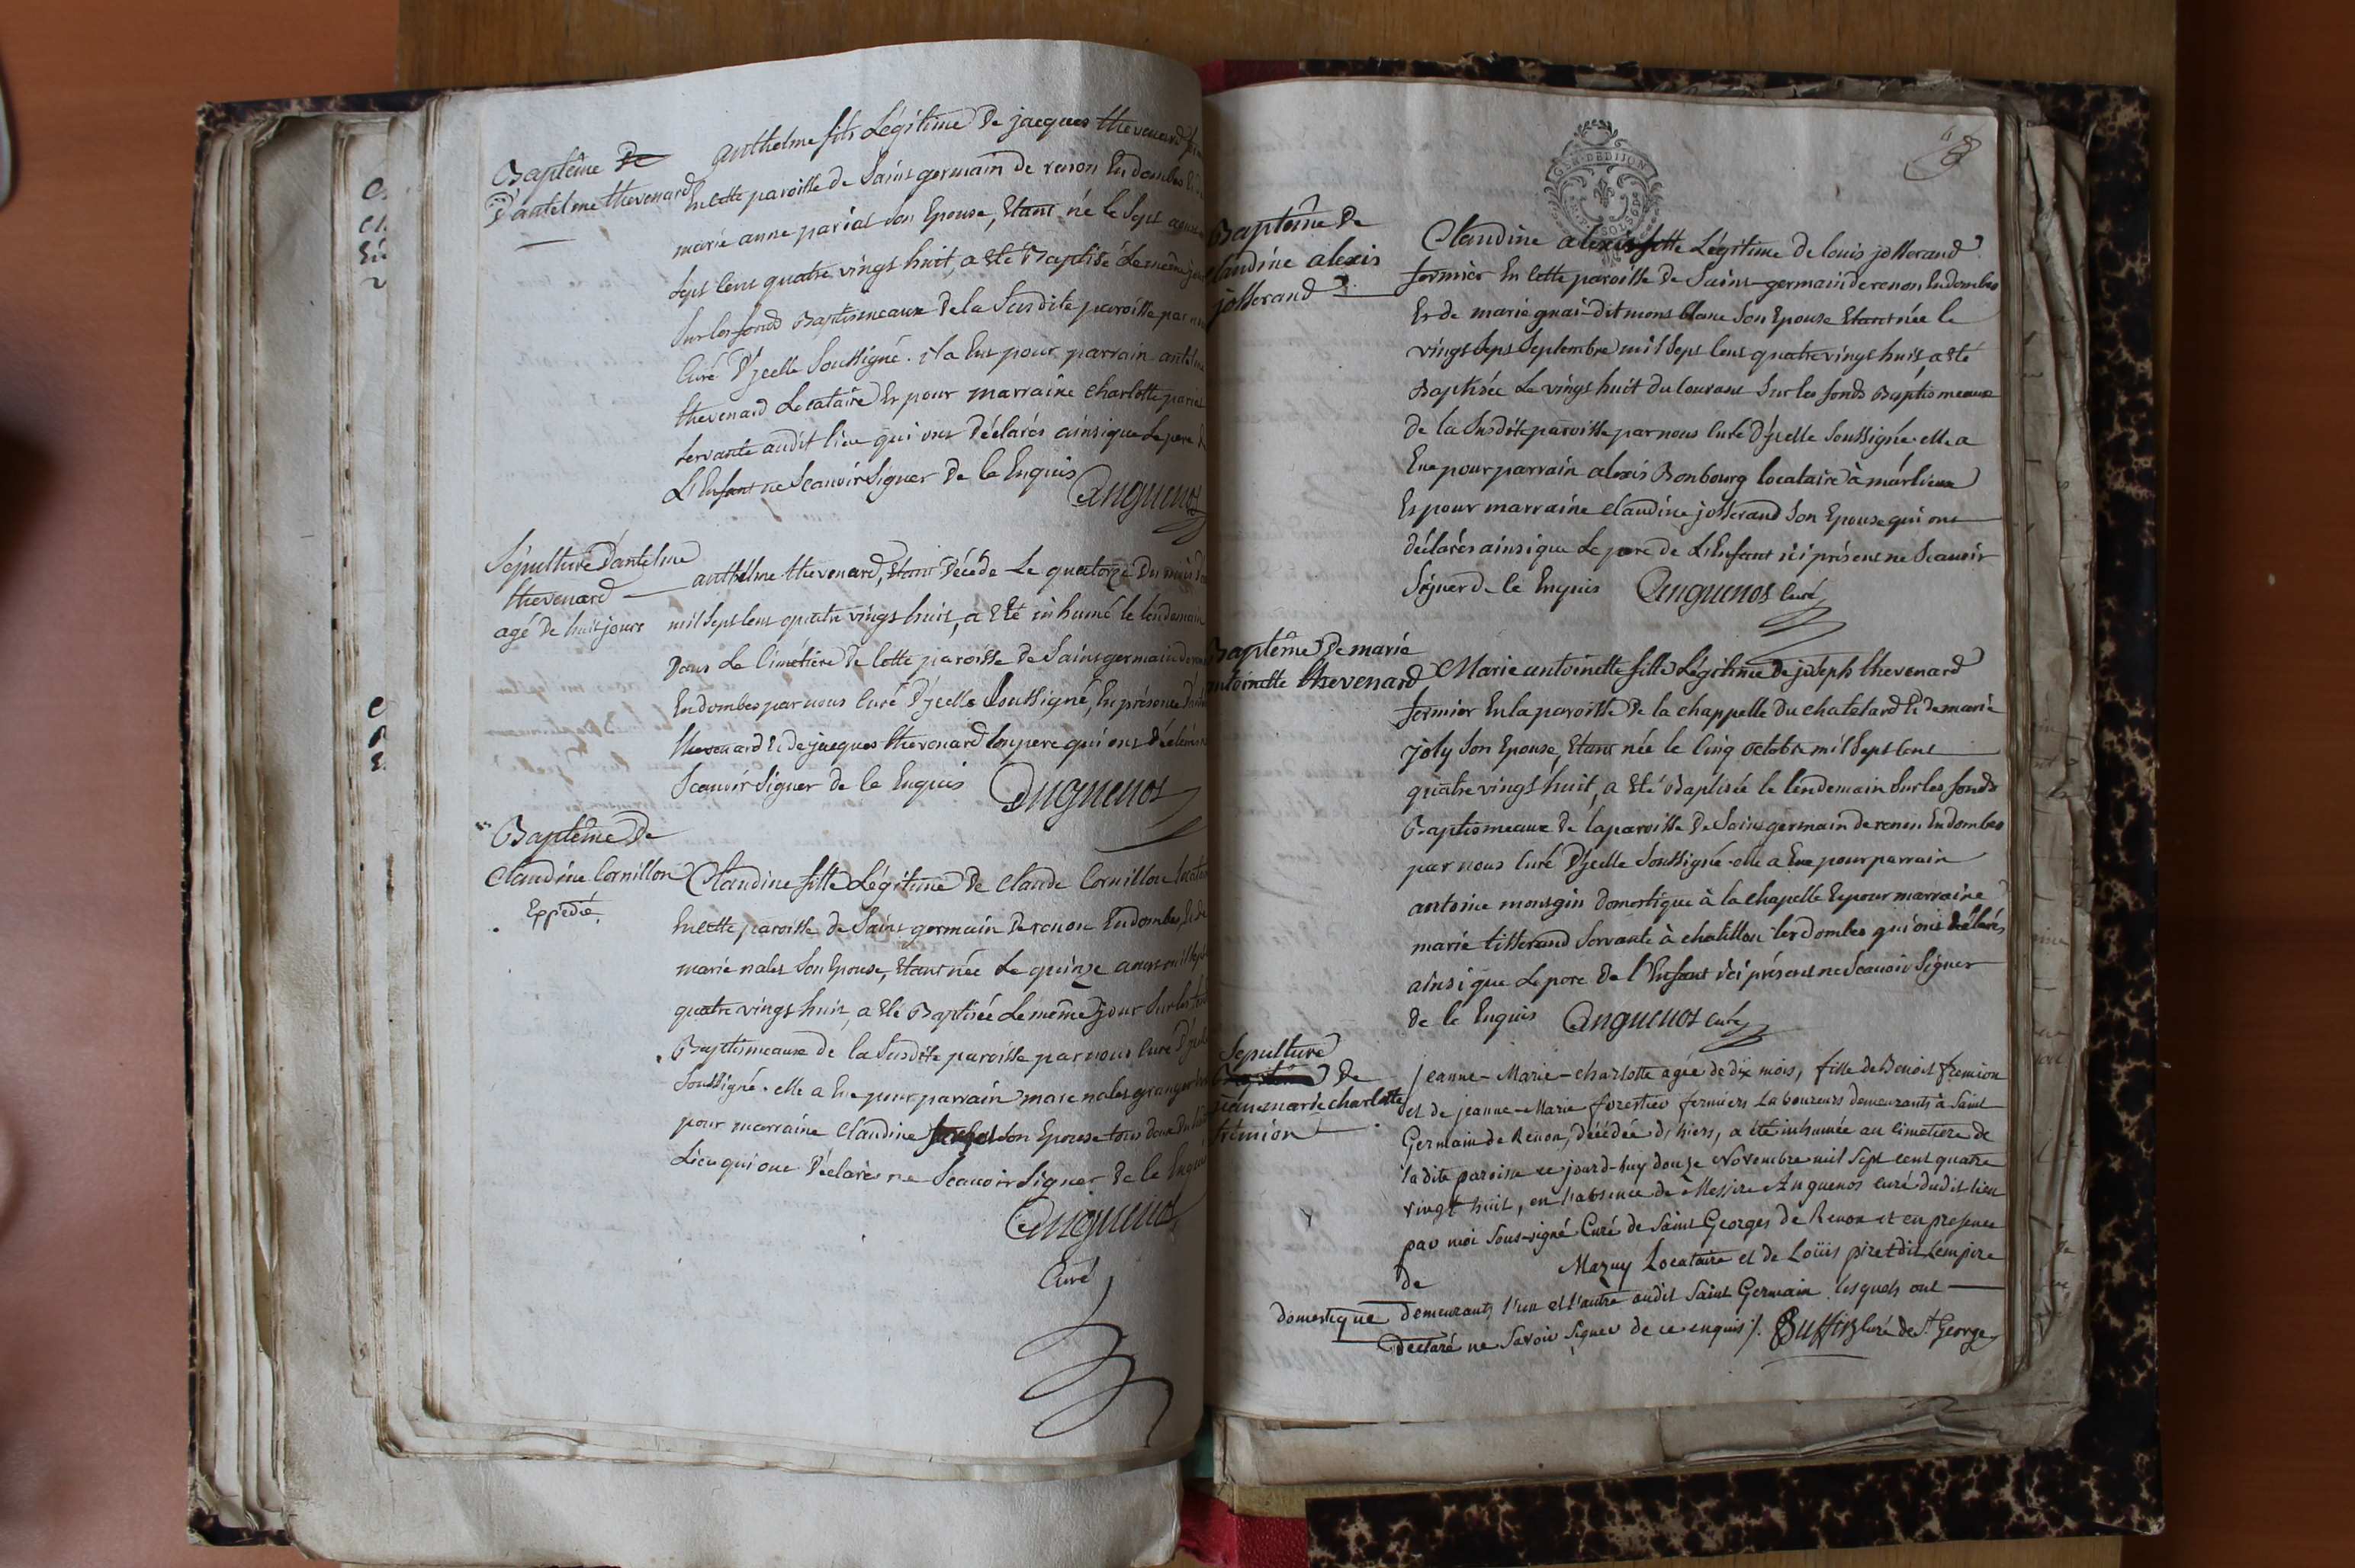 Baptême de
d'antelme thevenard
anthelme fils Légitime de jacques thevenard
En cette paroisse de Saint germain de renon En dombes
marie anne pariat son Epouse, Etant né le Sept
Sept Cent quatre vingt huit, a Eté Baptisé le même jour
Sur les fonds Baptismeaux de la Susdite paroisse par
Curé D'ycelle Soussigné. il a Eut pour parrain
thevenard Locataire Et pour marraine charlotte
servante audit lieu qui ont Déclarés ainsi que le pere de
L'Enfant ne Scauoir Signer de ce Enquis
Anguenot
Sépulture d'antelme
thevenard
agé de huit jours
anthelme thevenard, Etant Décédé Le quatorze Du mois
mil Sept Cent quatre vingt huit, a Eté inhumé le lendemain
Dans Le Cimetière de Cette paroisse de Saint germain de
En dombes par nous Curé D'ycelle Soussigné, En présence
thevenard Et de jacques thevenard son pere qui ont
Scauoir Signer de ce Enquis
Anguenot
Baptême de
Claudine Cornillon
Expédié.
Claudine fille Légitime de Claude Cornillon
En cette paroisse de Saint germain de renon En dombes, Et de
marie nalet Son Epouse, Etant née Le quinze
quatre vingt huit, a Eté Baptisée Le même jour Sur les
Baptismeaux de la Susdite paroisse par nous Curé
Soussigné. elle a Eue pour parrain marc nalet granger
pour marraine Claudine son Epouse tous deux
Lieu qui ont Déclarés ne Scauoir Signer de ce
Anguenot
Curé
GEN. DE DIJON
Baptême de
claudine alexis
josserand
Claudine alexis fille Légitime de louis josserand
fermier En Cette paroisse de Saint-germain de renon En dombes
Et de marie guai-dit mont blanc Son Epouse Etant née le
vingt Sept Septembre mil Sept Cent quatre vingt huit, a Eté
Baptisée Le vingt huit du Courant Sur les fonds Baptismeaux
de la Susdite paroisse par nous Curé D'ycelle Soussigné. elle a
Eue pour parrain alexis Bonbourg locataire à marlieux
Et pour marraine claudine josserand Son Epouse qui ont
déclarés ainsi que Le pere de L'Enfant ici présent ne Scauoir
Signer de ce Enquis Anguenot Curé
Baptême de marie
antoinette thevenard
Marie antoinette fille Légitime de joseph thevenard
fermier En la paroisse de la chappelle du chatelard Et de marie
joly Son Epouse, Etant née le Cinq octobre mil Sept Cent
quatre vingt huit, a Eté Baptisée le lendemain Sur les fonds
Baptismeaux de la paroisse de Saint germain de renon En dombes
par nous Curé D'ycelle Soussigné. elle a Eue pour parrain
antoine mongin domestique à la chapelle Et pour marraine
marie tisserand Servante à chatillon les dombes qui ont déclarés
ainsi que Le pere de l'Enfant ici présent ne Scauoir Signer
de ce Enquis Anguenot curé
Sepulture
de
jeanne marie charlotte
fremion
jeanne-Marie-charlotte agée de dix mois, fille de Benoit fremion
et de jeanne-Marie forestier fermiers Laboureurs demeurants à Saint
Germain de Renon, décédée d'hiers, a été inhumée au Cimetiere de
la dite paroisse ce jourd-huy douze Novembre mil Sept cent quatre
vingt huit, en l'absence de Messire Anguenos curé dudit lieu
par moi Sous-signé Curé de Saint Georges de Renon et en presence
de Mazuy Locataire et de Loüis piret dit Lempire
domestique demeurants l'un et l'autre audit Saint Germain lesquels ont
declaré ne Savoir Signer de ce enquis /. Buffin Curé de St George